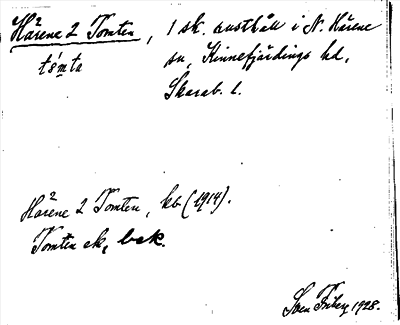 Hårene 2 Tomten, 1 sk. avsthåll i N. Hårene
tómta sn, Kinnefjärdings hd,
Skarab. l.
Hårene 2 Tomten, kb (1914).
Tomten ek, bek.
Sven Friberg 1928.